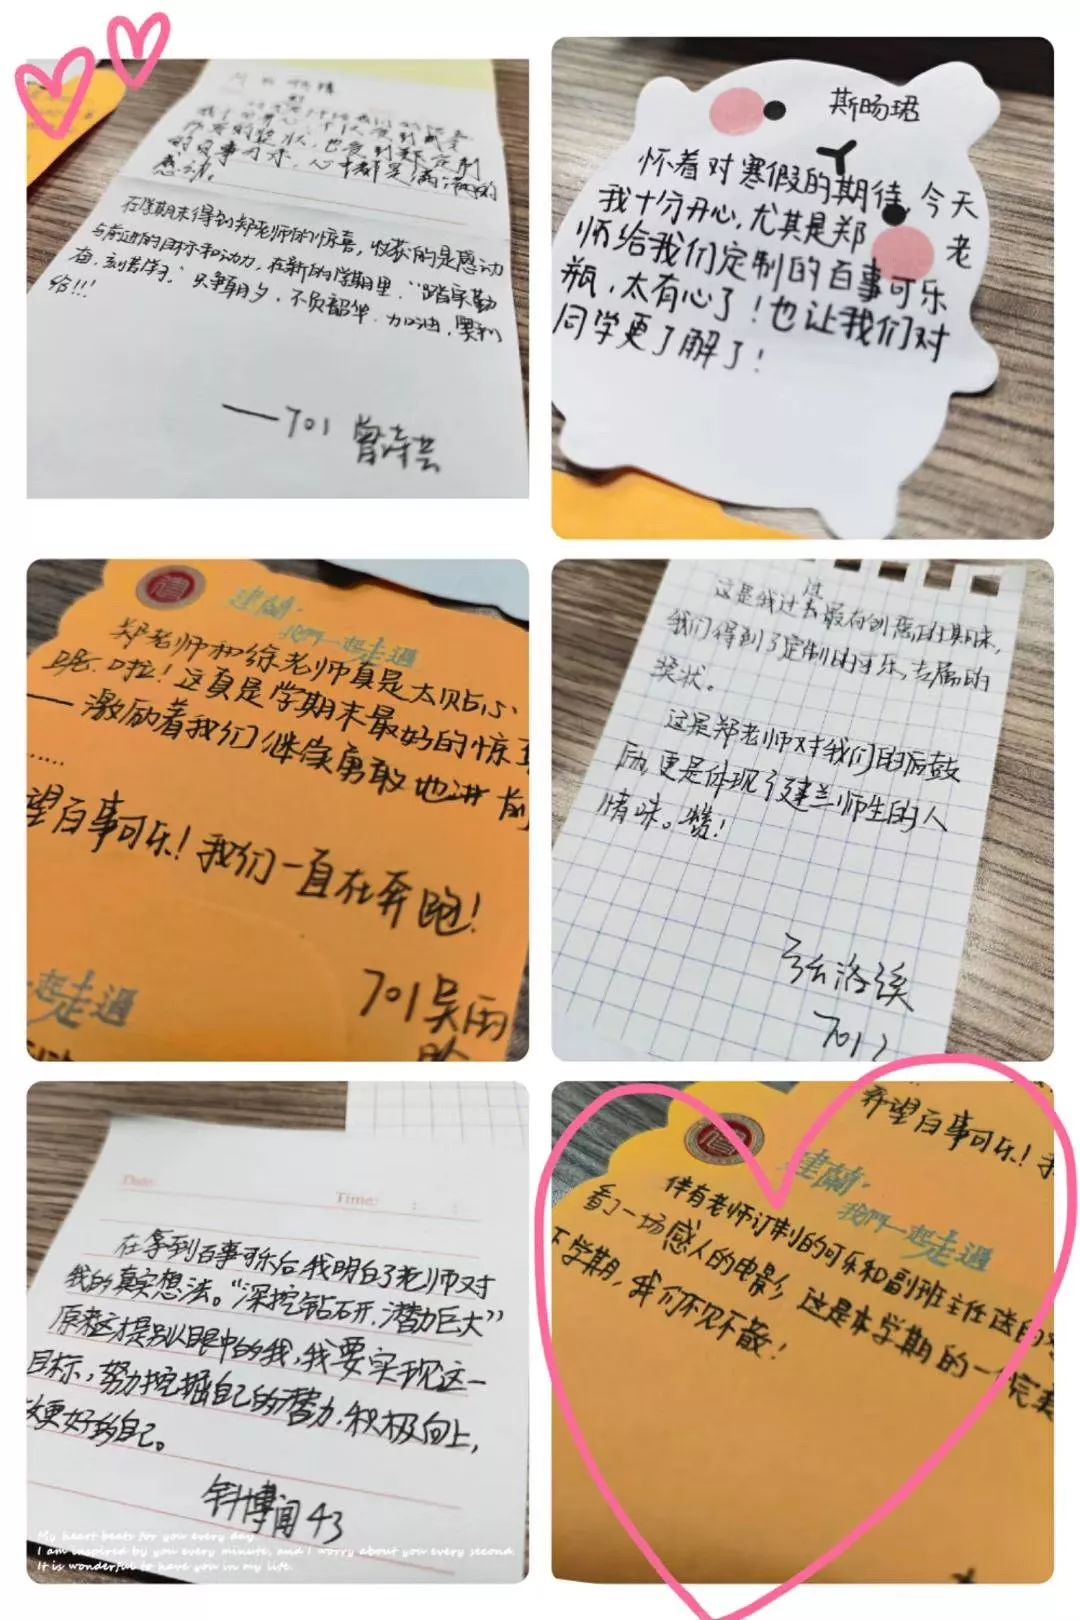 在学期末得到郑老师的惊喜，收获的是感动
与前进的目标和动力，在新的学期里，“踏实勤
奋，刻苦学习”只争朝夕，不负韶华，加油，奥利
给!!!
——701 曾诗芸
斯旸珺
怀着对寒假的期待，今天
我十分开心，尤其是郑老
师给我们定制的百事可乐
瓶，太有心了！也让我们对
同学更了解了！
建蘭·
我們一起走過
郑老师和徐老师真是太贴心
啦！这真是学期末最好的惊
——激励着我们继续勇敢地进前
……
望百事可乐！我们一直在奔跑！
701吴雨
一起走過
这是我过过去最有创意的期末，
我们得到了定制的可乐，专属的
奖状。
这是郑老师对我们的
励，更是体现了建兰师生的人
情味。赞！
张洛溪
701
Date:
Time:
在拿到百事可乐后，我明白了老师对
我的真实想法。“深挖钻石开，潜力巨大”
原来这才是别人眼中的我，我要实现这一
目标，努力挖掘自己的潜力，积极向上，
做更好的自己。
钭博闻 43
My heart beats for you every day
I am inspired by you every minute, and I worry about you every second.
It is wonderful to have you in my life.
希望百事可乐！
建蘭·
我們一起走過
伴有老师订制的可乐和副班主任送的
看了一场感人的电影，这是本学期的一个完美
下学期，我们不见不散！